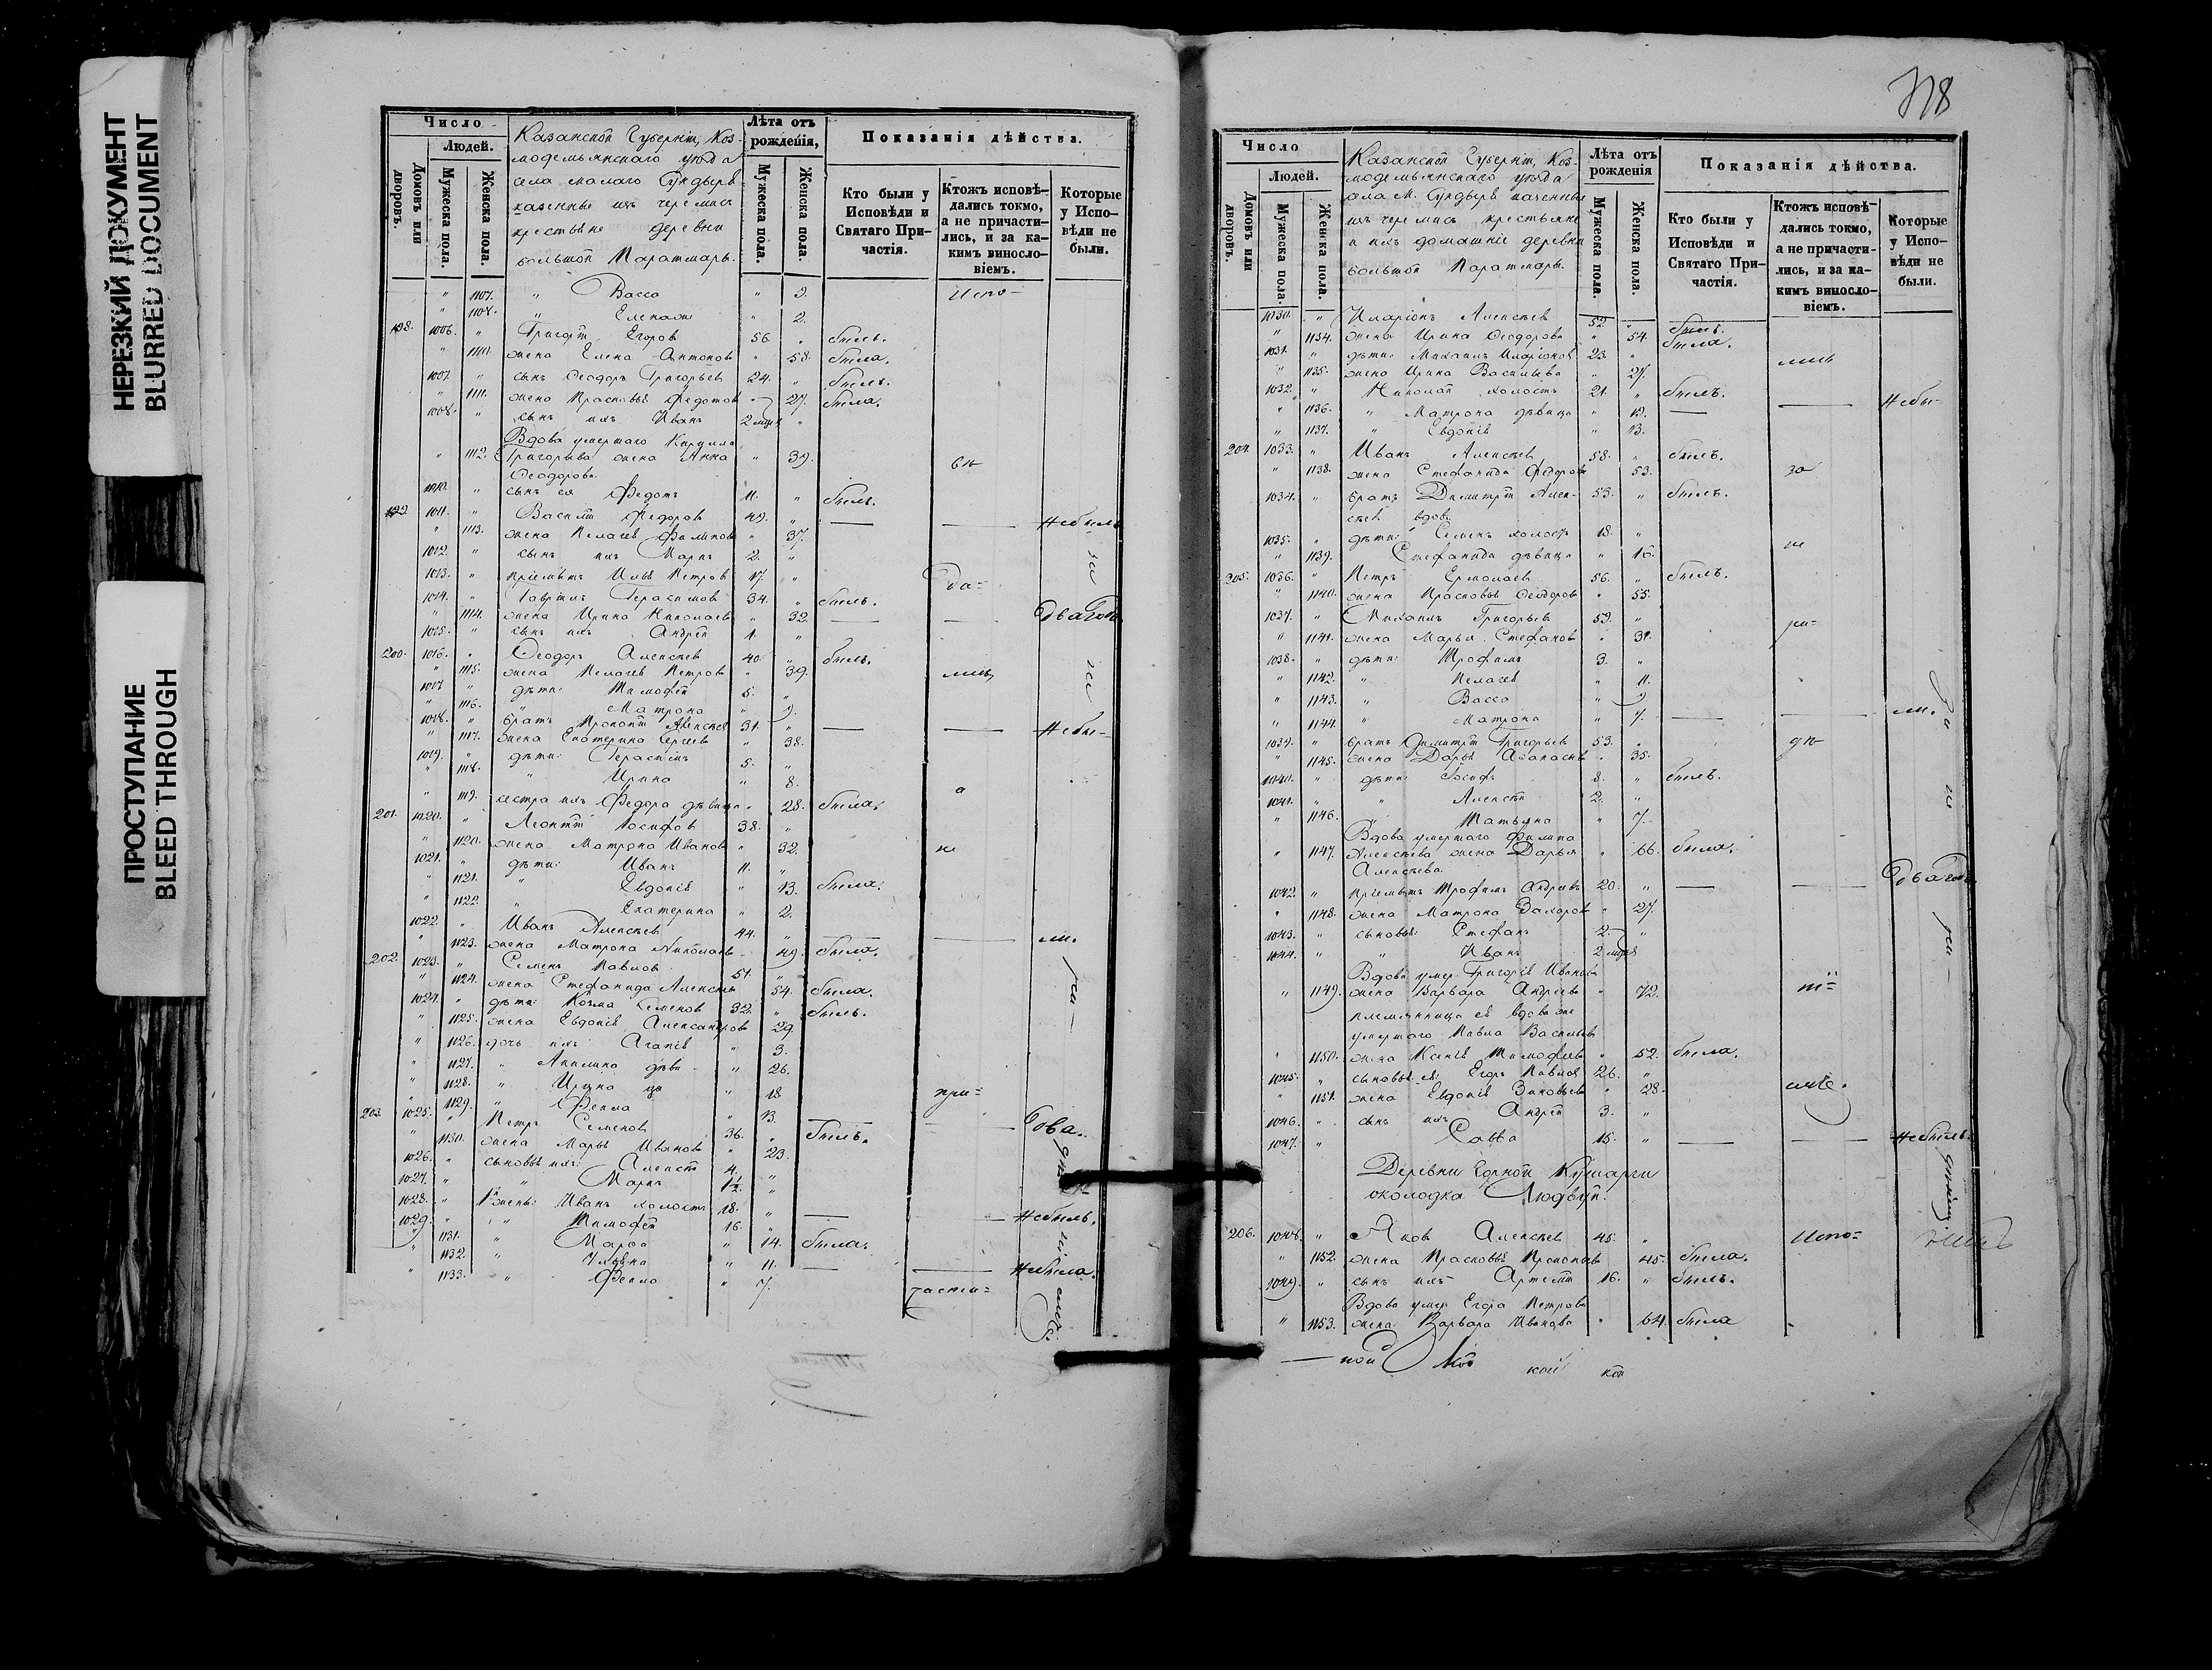 НЕРЕЗКИЙ ДОКУМЕНТ
BLURRED DOCUMENT
ПРОСТУПАНИЕ
BLEED THROUGH
Число
Людей.
Домовъ или дворовъ.
Мужеска пола.
Женска пола.
Казанской Губерніи, Коз-
модемьянскаго уѣзда
села малаго Сундыря
казенные изъ черемисъ
крестьяне деревни
большой Паратмары.
Лѣта отъ рожденія,
Мужеска пола.
Женска пола.
Показанія дѣйства.
Кто были у Исповѣди и Святаго При-частія.
Ктожъ исповѣ-дались токмо, а не причасти-лись, и за ка-кимъ винословіемъ.
Которые у Испо-вѣди не были.
" 1107. " Васса " 2. Испо-
" 1108. " " 2.
198. 1006. " Григорій Егоровъ 56. " былъ.
" 1110. жена Елена Антонова " 58. была.
1007. " сынъ Ѳеодоръ Григорьевъ 24. " былъ.
" 1111. жена Прасковья Федотова " 27. была.
1008. " сынъ ихъ Иванъ 2 мѣс "
Вдова умершаго Кирилла
" 1112. Григорьева жена Анна " 39. вѣ
Ѳеодорова.
1010. " сынъ ея Федотъ 11. " былъ.
199. 1011. " Василій Федоровъ 49. " — — Небылъ
" 1113. жена Пелагея Филипова " 37.
1012. " сынъ ихъ Маркъ 2. "
1013. " пріемышъ Илья Петровъ 17. " да=
1014. " Гаврилъ Герасимовъ 34. " былъ.
" 1114. жена Ирина Николаева " 32. — —
1015. " сынъ ихъ Андрей 1. "
200. 1016. " Ѳеодоръ Алексѣевъ 40. " былъ.
" 1115. жена Пелагея Петрова " 39. лись,
1017. " дѣти: Тимофей 5. "
" 1116. " Матрона " 9.
1018. " братъ Прокопій Алексѣевъ 31. " — — Небы-
" 1117. жена Екатерина Сергеева " 38.
1019. " дѣти: Герасимъ 5. "
" 1118. " Ирина " 8.
" 1119. сестра ихъ Федора дѣвица " 28. была. а
201. 1020. " Леонтій Іосифовъ 38. "
" 1120. жена Матрона Иванова " 32. не
1021. " дѣти: Иванъ 11. "
" 1121. " Евдокія " 13. была.
" 1122. " Екатерина " 2.
1022. " Иванъ Алексѣевъ 44. " — — ли.
" 1123. жена Матрона Николаева " 49. была.
202. 1023. " Семенъ Павловъ 51. "
" 1124. жена Стефанида Алексѣева " 54. была.
1024. " дѣти: Козма Семеновъ 32. " былъ.
" 1125. жена Евдокія Александрова " 29
" 1126. дочь ихъ Агапія " 3.
" 1127. " Акилина дѣви- " 26.
" 1128. " Ирина ца " 18 при=
" 1129. " Фекла " 13.
203. 1025. " Петръ Семеновъ 36. " былъ.
" 1130. жена Марья Иванова " 23.
1026. " сыновья ихъ: Алексей 4. "
1027. " " Маркъ 1½. "
1028. " 1й жены: Иванъ холостъ 18. " — — Небылъ.
1029. " " Тимофей 16. "
" 1131. " Марфа " 14. была.
" 1132. " " 11. — — Небыла.
" 1133. " Фекла " 7. части=
Число
Людей.
Домовъ или дворовъ.
Мужеска пола.
Женска пола.
Казанской Губерніи, Коз-
модемьянскаго уѣзда
села М. Сундыря казенные
изъ черемисъ крестьяне
и ихъ домашніе деревни
большой Паратмары.
Лѣта отъ рожденія
Мужеска пола.
Женска пола.
Показанія дѣйства.
Кто были у Исповѣди и Святаго При-частія.
Ктожъ исповѣ-дались токмо, а не причасти-лись, и за ка-кимъ винословіемъ.
Которые у Испо-вѣди не были.
1030. " Иларіонъ Алексѣевъ 52. " былъ.
" 1134. жена Ирина Ѳеодорова " 54. была.
1031. " дѣти: Михаилъ Иларіоновъ 23. " лись
" 1135. жена Ирина Васильева " 27.
1032. " Николай холостъ 21. " былъ. Небы-
" 1136. " Матрона дѣвица " 19. — —
" 1137. " Евдокія " 13.
204. 1033. " Иванъ Алексѣевъ 58. " былъ.
" 1138. жена Стефанида Федорова " 53. за
1034. " братъ Димитрій Алек- 53. " былъ.
сѣевъ вдовъ
1035. " дѣти: Семенъ холостъ 18. " не
" 1139. Стефанида дѣвица " 16.
205. 1036. " Петръ Ермолаевъ 56. " былъ.
" 1140. жена Прасковья Ѳеодорова " 55.
1037. " Михаилъ Григорьевъ 59. " ра=
" 1141. жена Марья Стефанова " 31.
1038. " дѣти: Трофимъ 3. "
" 1142. " Пелагея " 11.
" 1143. " Васса " 9
" 1144. " Матрона " 7. — — ли.
1039. " братъ Димитрій Григорьевъ 53. " дѣ
" 1145. жена Дарья Аѳанасьева " 35.
1040. " дѣти: Іосифъ 8. " былъ.
1041. " " Алексѣй 2. "
" 1146. " Татьяна " 7.
Вдова умершаго Филипа
" 1147. Алексѣева жена Дарья " 66. была.
Алексѣева
1042. " пріемышъ Трофимъ Андреевъ 20. " — —
" 1148. жена Матрона Захарова " 27.
1043. " сыновья: Стефанъ 2. "
1044. " " Иванъ 2 мѣс
Вдова умер. Григорія Иванова
" 1149. жена Варвара Андреева " 72. ні=
племянница ея вдова же
умершаго Павла Васильева
" 1150. жена Ксенія Тимофѣева " 52. была.
1045. " сыновья ея: Егоръ Павловъ 26. "
" 1151. жена Евдокія Зиновьева " 28. емъ.
1046. " сынъ ихъ Андрей 3. "
1047. " Савва 15. " — — Небылъ.
Деревни Горной Кушарги
околодка
206. 1048. " Яковъ Алексѣевъ 45. " Испо=
" 1152. жена Прасковья Прокопьева " 45. была.
1049. " сынъ ихъ Артемій 16. " былъ.
Вдова умер. Егора Петрова
" 1153. жена Варвара Иванова " 64. была